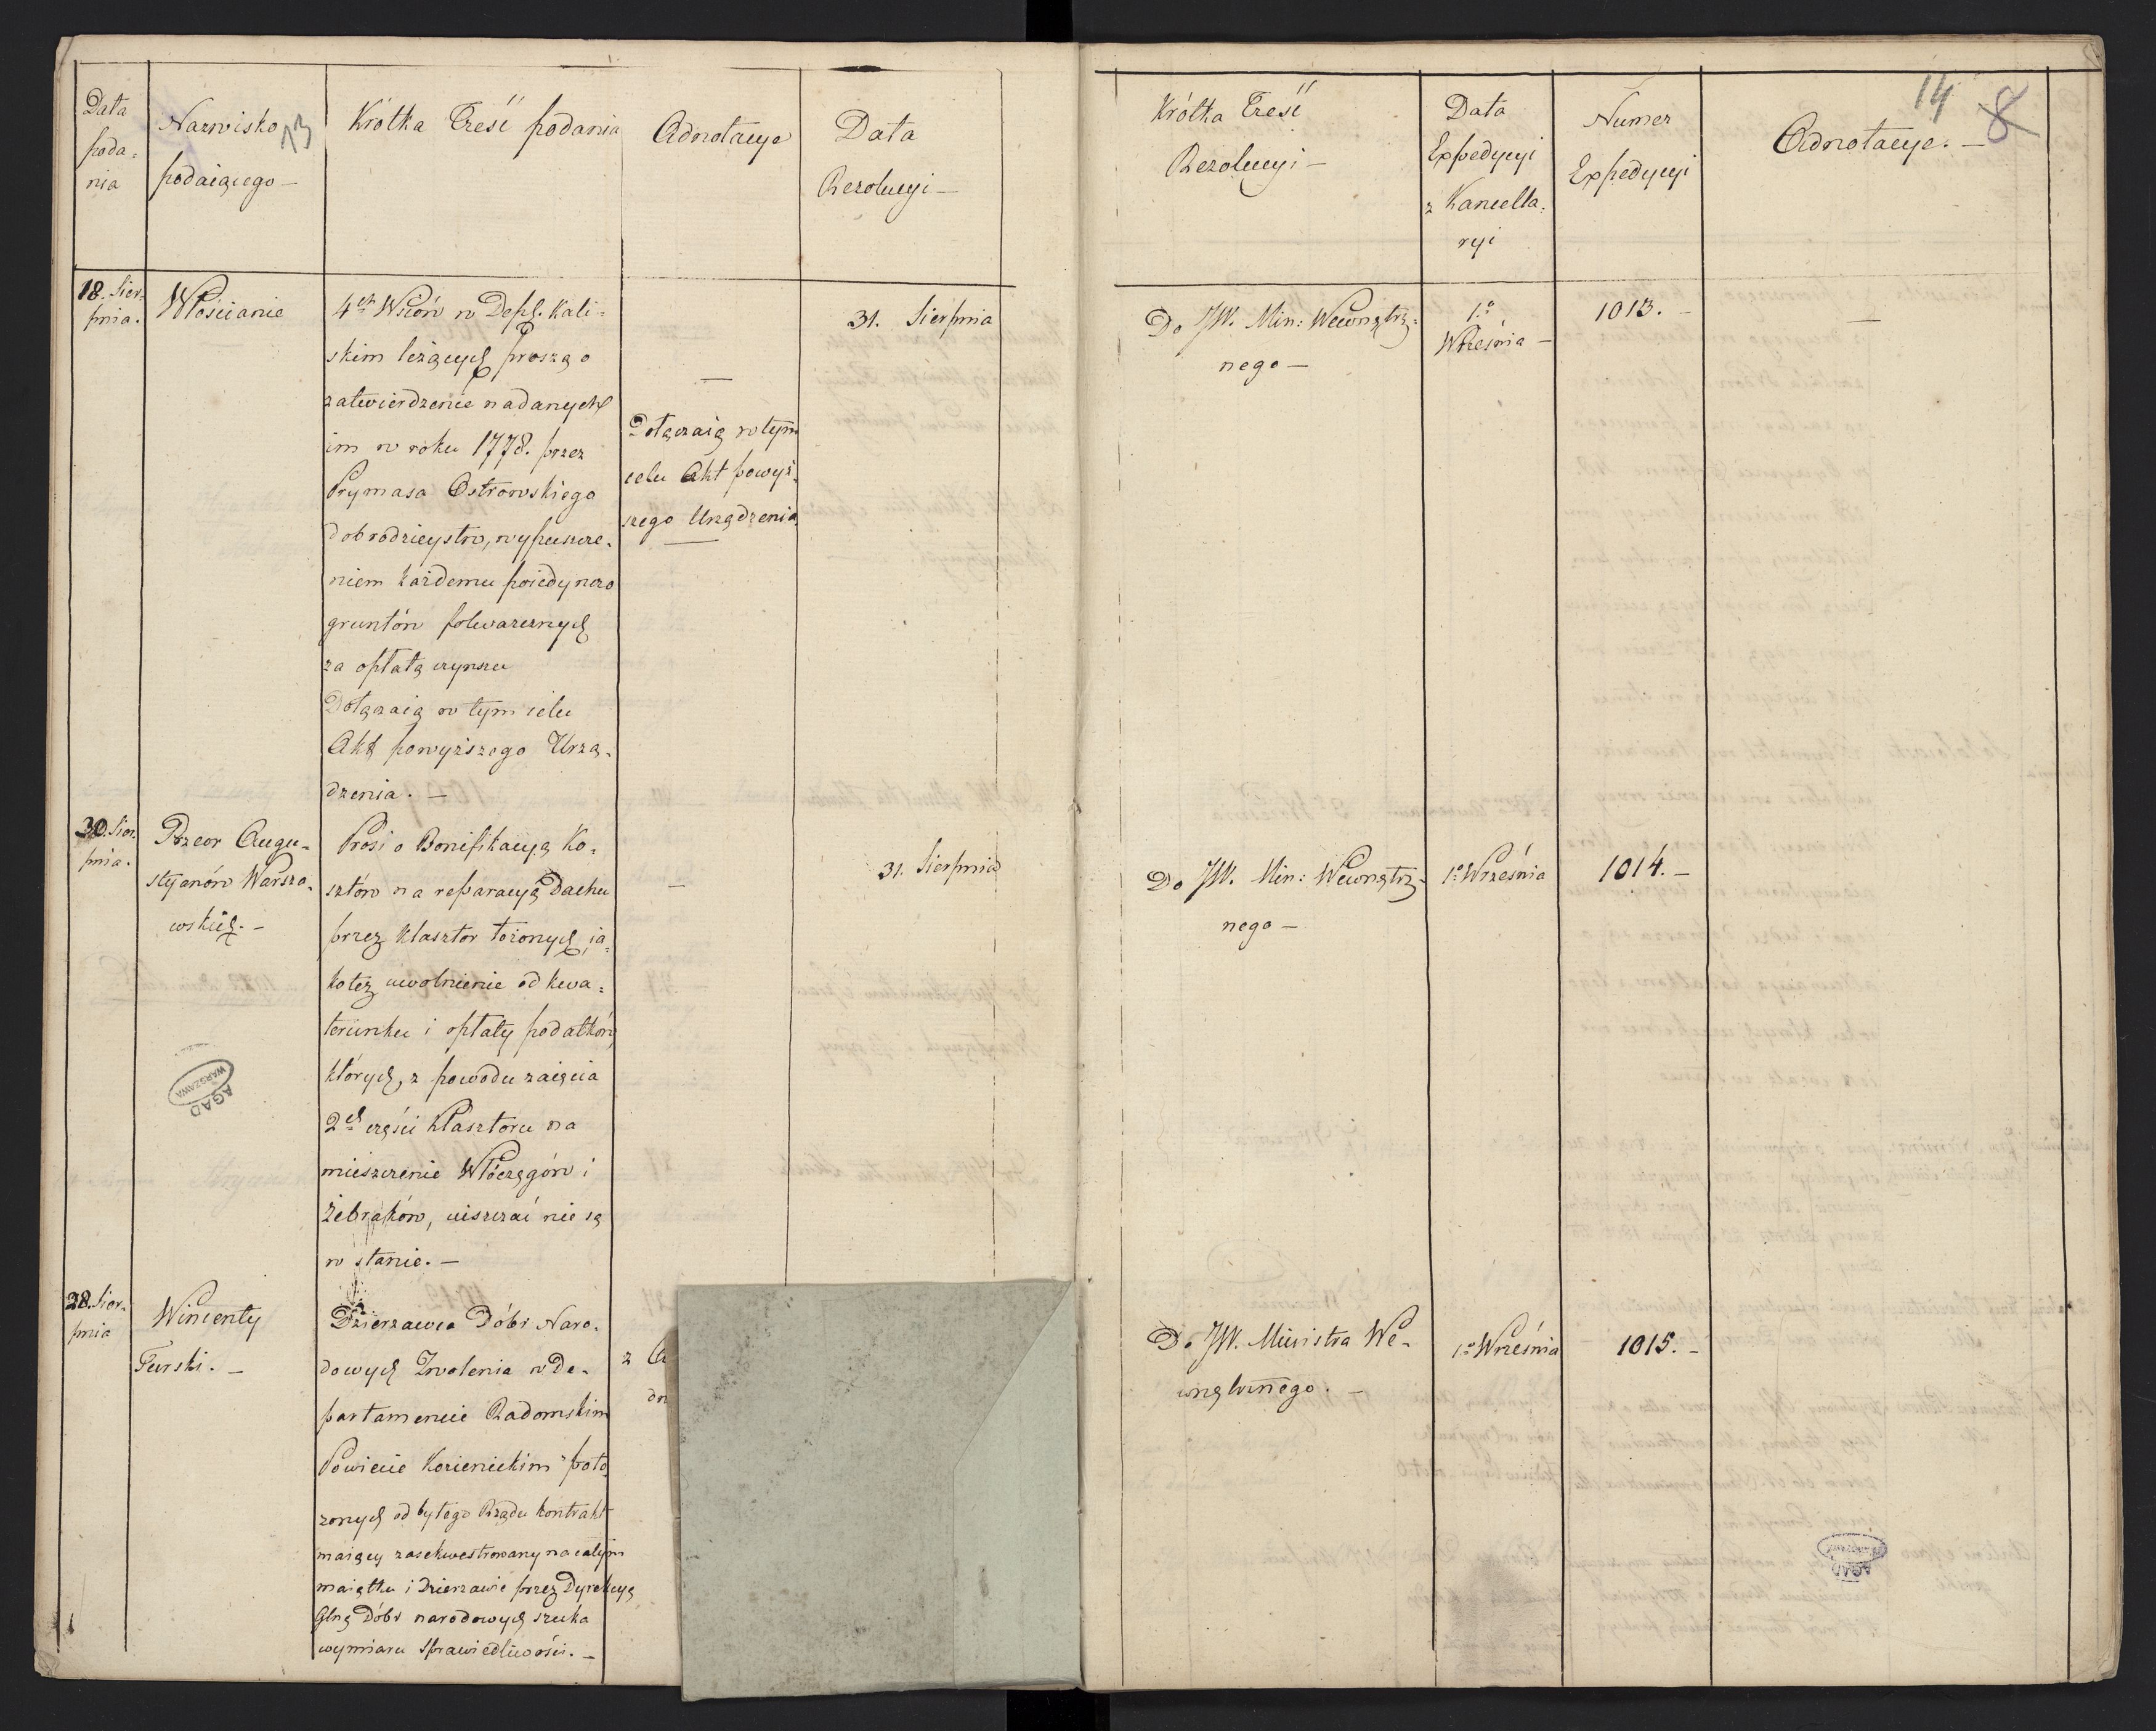 Data
poda-
nia
Nazwisko
podaiącego —
13
Krótka Treść podania
Adnotacye
Data
Rezolucyi —
18. Sier-
pnia.
Włościanie
4ch Wsiów w Dept. Kali-
skim leżących proszą o
zatwierdzenie nadanych
im w roku 1778. przez
Prymasa Ostrowskiego
dobrodzieystw, wypuszcze-
niem każdemu poiedynczo
gruntów folwarcznych
za opłatą czynszu
Dołączaią w tym celu
Akt powyższego Urzą-
dzenia. —
—
Dołączaią w tym
celu Akt powyż-
szego Urządzenia
31. Sierpnia
30. Sier.
pnia.
Przeor Augu-
styanów Warsza-
wskich. —
Prosi o Bonifikacyą Ko-
sztów na reparacyą Dachu
przez Klasztor łożonych, ia-
koteż uwolnienie od kwa-
terunku i opłaty podatków
których, z powodu zaięcia
2ch części Klasztoru na
mieszczenie Włóczęgów i
Żebraków, uiszczać nie są
w stanie. —
—
31. Sierpnia
AGAD
WARSZAWA
28. Sier-
pnia
Wincenty
Turski. —
Dzierzawca Dóbr Naro-
dowych Zwolenia w De-
partamencie Radomskim
Powiecie Kozienickim poło-
zonych od byłego Rządu kontrakt
maiący zasekwestrowany na całym
maiątku i Dzierzawie przez Dyrekcyą
Glną Dóbr narodowych szuka
wymiaru Sprawiedliwości. —
z
14
8
Krótka Treść
Rezolucyi —
Data
Expedycyi
z Kancella-
ryi
Numer
Expedycyi
Adnotacye. —
Do JW. Min: Wewnętrz-
nego —
1o
Września —
1013. —
—
Do JW. Min: Wewnętrz-
nego —
1o Września
1014. —
Do JW. Ministra We-
wnętrznego. —
1o Września
1015. —
AGAD